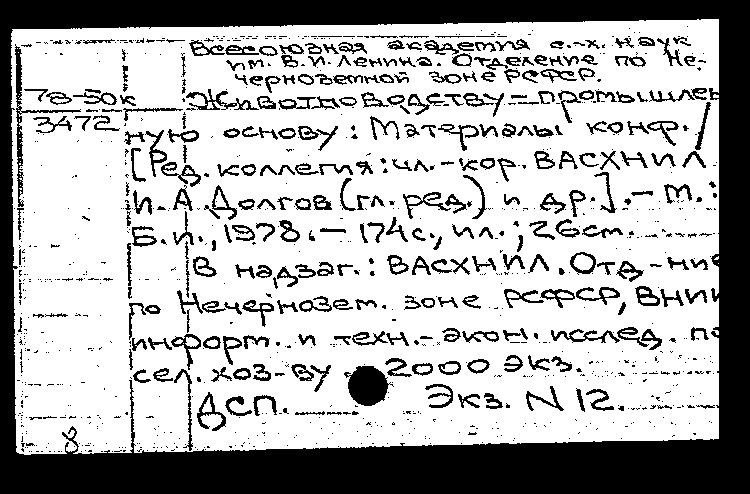 Всесоюзная академия с.-х. наук
им. В.И. Ленина. Отделение по Не-
черноземной зоне РСФСР.
78-50к Животноводству - промышлен
3472 ную основу : Материалы конф. /
[Ред. коллегия : чл.-кор. ВАСХНИЛ
И.А. Долгов (гл. ред.) и др.]. - М. :
Б.и., 1978. - 174 с., ил.; 26 см.
В надзаг.: ВАСХНИЛ. Отд-ние
по Нечернозем. зоне РСФСР, ВНИИ
информ. и техн.-экон. исслед. по
сел. хоз-ву. 2000 экз.
ДСП. Экз. N 12.
8